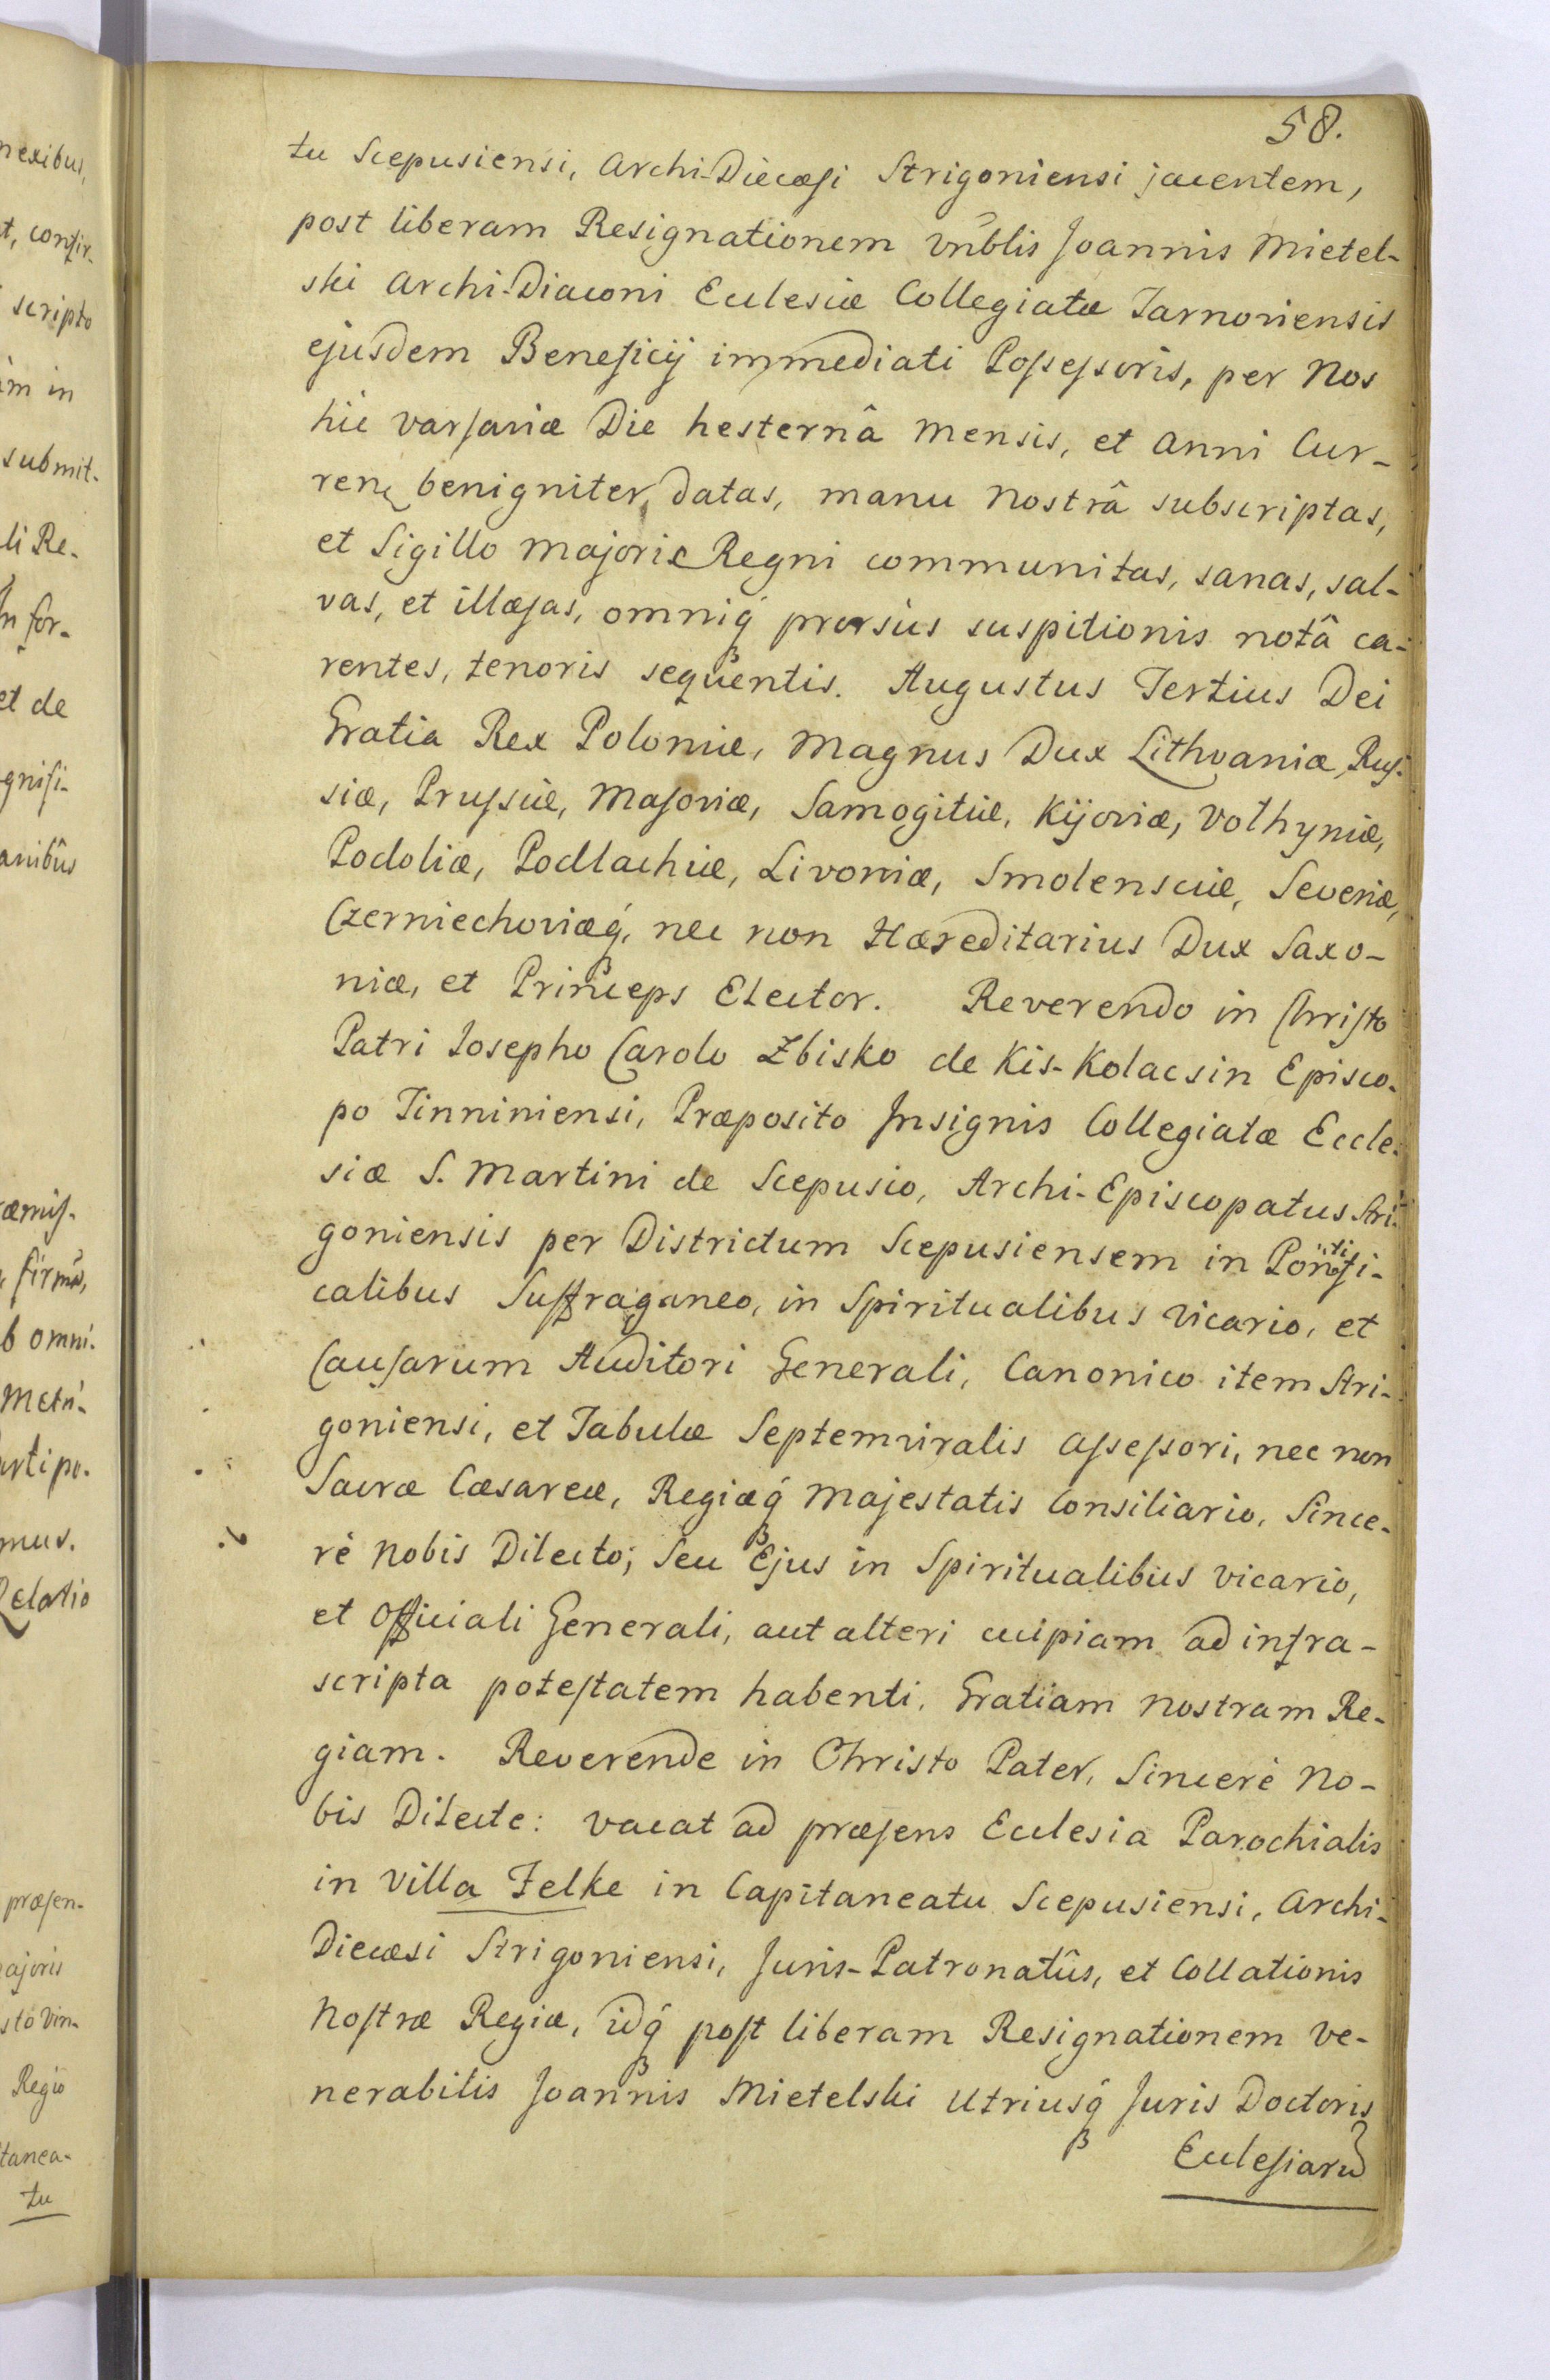 58.
tu Scepusiensi, Archi-Diecæsi Strigoniensi jacentem,
post liberam Resignationem Vnblis Joannis Mietel-
ski Archi-Diaconi Ecclesiæ Collegiatæ Tarnoviensis
ejusdem Beneficij immediati Possessoris, per Nos
hic Varsaviæ Die hesternâ Mensis, et Anni Cur-
ren benigniter datas, manu Nostrâ subscriptas,
et Sigillo Majoris Regni communitas, sanas, sal-
vas, et illæsas, omniq́ prorsùs suspitionis notâ ca-
rentes, tenoris sequentis. Augustus Tertius Dei
Gratia Rex Poloniæ, Magnus Dux Lithvaniæ, Rus-
siæ, Prussiæ, Masoviæ, Samogitiæ, Kijoviæ, Volhyniæ,
Podoliæ, Podlachiæ, Livoniæ, Smolensciæ, Severiæ,
Czerniechoviæq́, nec non Hæreditarius Dux Saxo-
niæ, et Princeps Elector. Reverendo in Christo
Patri Josepho Carolo Zbisko de Kis-Kolacsin Episco-
po Tinniniensi, Præposito Insignis Collegiatæ Eccle-
siæ S. Martini de Scepusio, Archi-Episcopatus Stri-
goniensis per Districtum Scepusiensem in Pontifi-
calibus Suffraganeo, in Spiritualibus Vicario, et
Causarum Auditori Generali, Canonico item Stri-
goniensi, et Tabulæ Septemviralis Assessori, nec non
Sacræ Cæsareæ, Regiæq́ Majestatis Consiliario, Since-
rè Nobis Dilecto; Seu Ejus in Spiritualibus Vicario,
et Officiali Generali, aut alteri cuipiam ad infra-
scripta potestatem habenti, Gratiam Nostram Re-
giam. Reverende in Christo Pater, Sincerè No-
bis Dilecte: Vacat ad præsens Ecclesia Parochialis
in Villa Felke in Capitaneatu Scepusiensi, Archi-
Diecæsi Strigoniensi, Juris-Patronatûs, et Collationis
Nostræ Regiæ, idq́ post liberam Resignationem Ve-
nerabilis Joannis Mietelski Utriusq́ Juris Doctoris
Ecclesiarū
nexibus,
t, confir-
scripto
im in
submit-
li Re-
In for-
et de
gnifi-
anibûs
ræmis-
firmâ,
b omni-
Metri-
mus.
Relatio
præsen-
ajoris
Regio
tanea-
tu